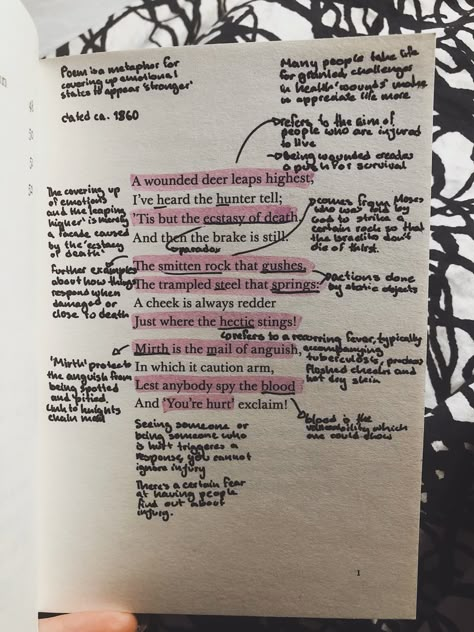 Poem is a metaphor for
covering up emotional
states to appear 'stronger'
dated ca. 1860
Many people take life
for granted, challenges
in health 'wounds' make
us appreciate life more
refers to the aim of
people who are injured
to live
Being wounded creates
a push for survival
A wounded deer leaps highest,
I've heard the hunter tell;
'Tis but the ecstasy of death,
And then the brake is still.
The smitten rock that gushes,
The trampled steel that springs:
A cheek is always redder
Just where the hectic stings!
Mirth is the mail of anguish,
In which it caution arm,
Lest anybody spy the blood
And 'You're hurt' exclaim!
The covering up
of emotions
and the leaping
higher is merely
a facade caused
by the 'ecstasy
of death'
paradox
comes from Moses
who was told by
God to strike a
certain rock so that
the Israelites don't
die of thirst.
Further examples
about how things
respond when
damaged or
close to death
actions done
by abiotic objects
refers to a recurring fever, typically
accompanying
tuberculosis, produces
flushed cheeks and
hot dry skin
'Mirth' protects
the anguish from
being spotted
and pitied.
Link to knights
chain mail
blood is the
vulnerability which
one could show
Seeing someone or
being someone who
is hurt triggers a
response, you cannot
ignore injury
There's a certain fear
at having people
find out about
injury.
1